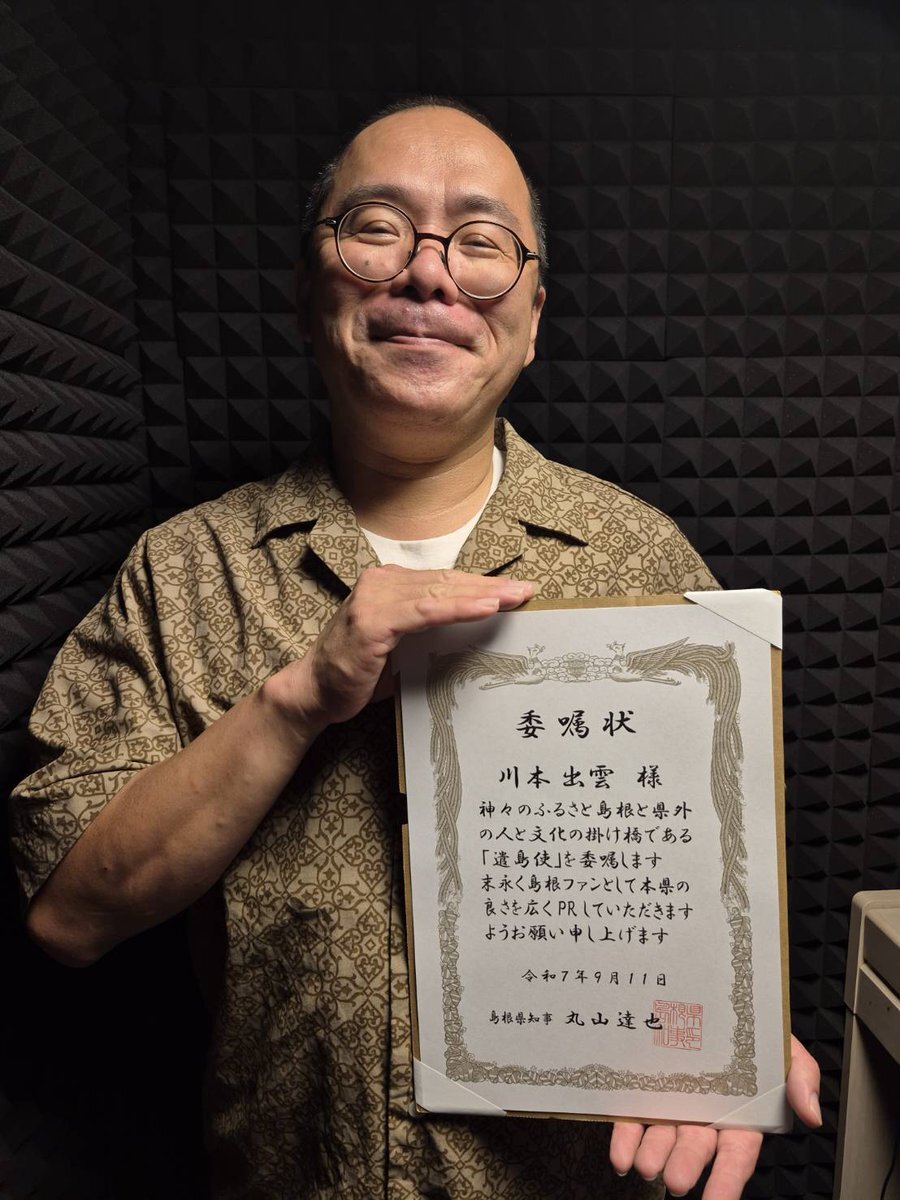 委嘱状
川本出雲 様
神々のふるさと島根と県外
の人と文化の掛け橋である
「遣島使」を委嘱します
末永く島根ファンとして本県の
良さを広くPRしていただきます
ようお願い申し上げます
令和7年9月11日
島根県知事 丸山達也